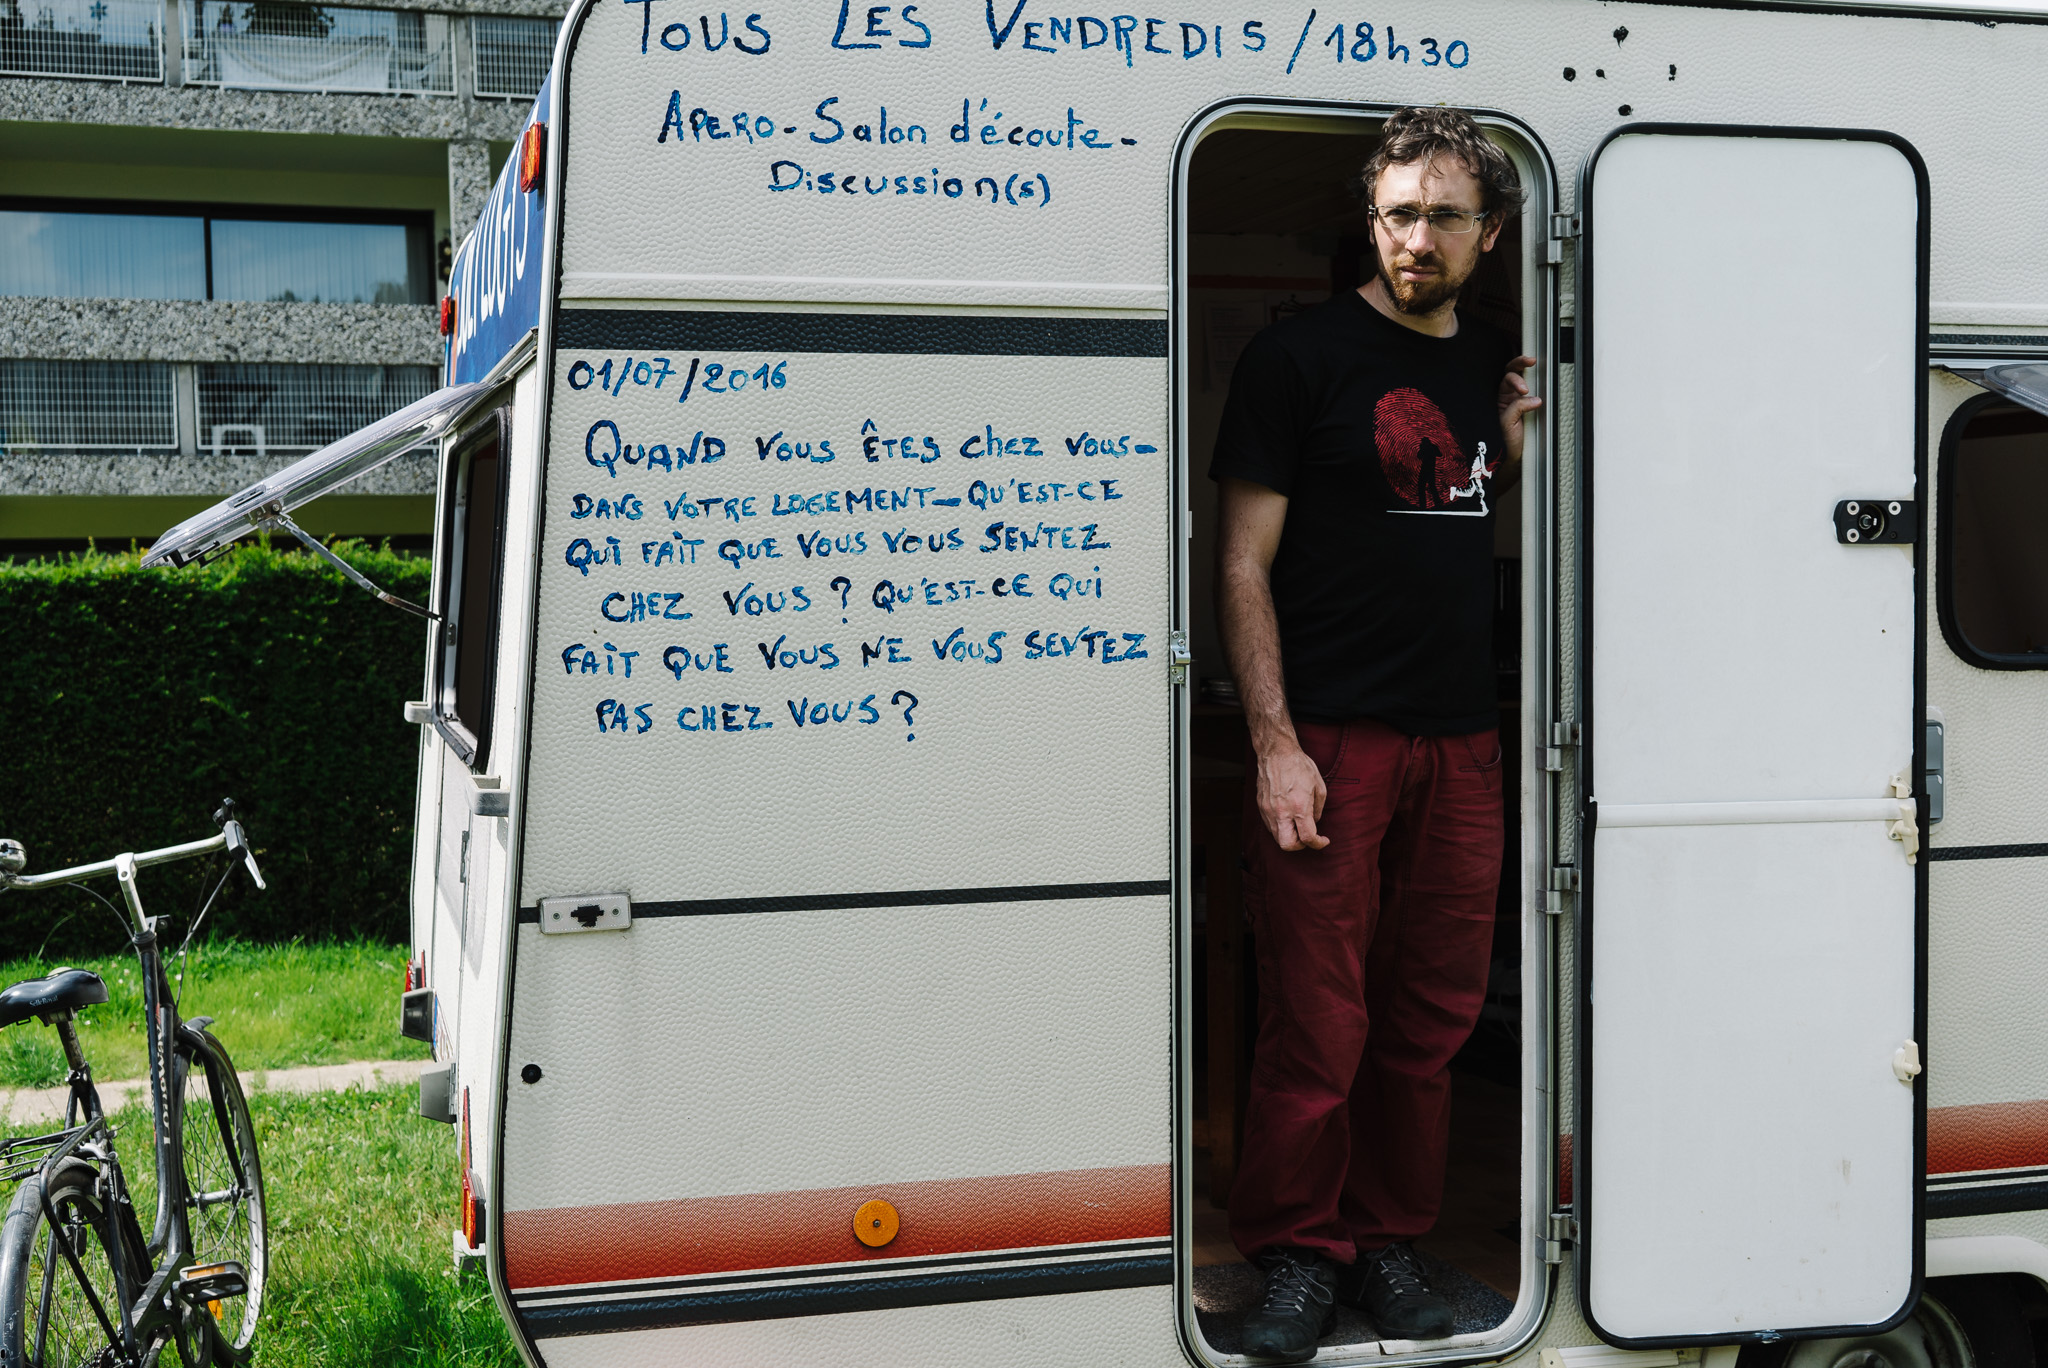 TOUS LES VENDREDIS / 18h30
APERO - Salon d'écoute -
Discussion(s)
01/07/2016
QUAND VOUS ÊTES chez vous -
DANS VOTRE LOGEMENT - QU'EST-CE
QUI FAIT QUE VOUS VOUS SENTEZ
CHEZ VOUS ? QU'EST-CE QUI
FAIT QUE VOUS NE VOUS SENTEZ
PAS CHEZ VOUS ?
Selle Royal